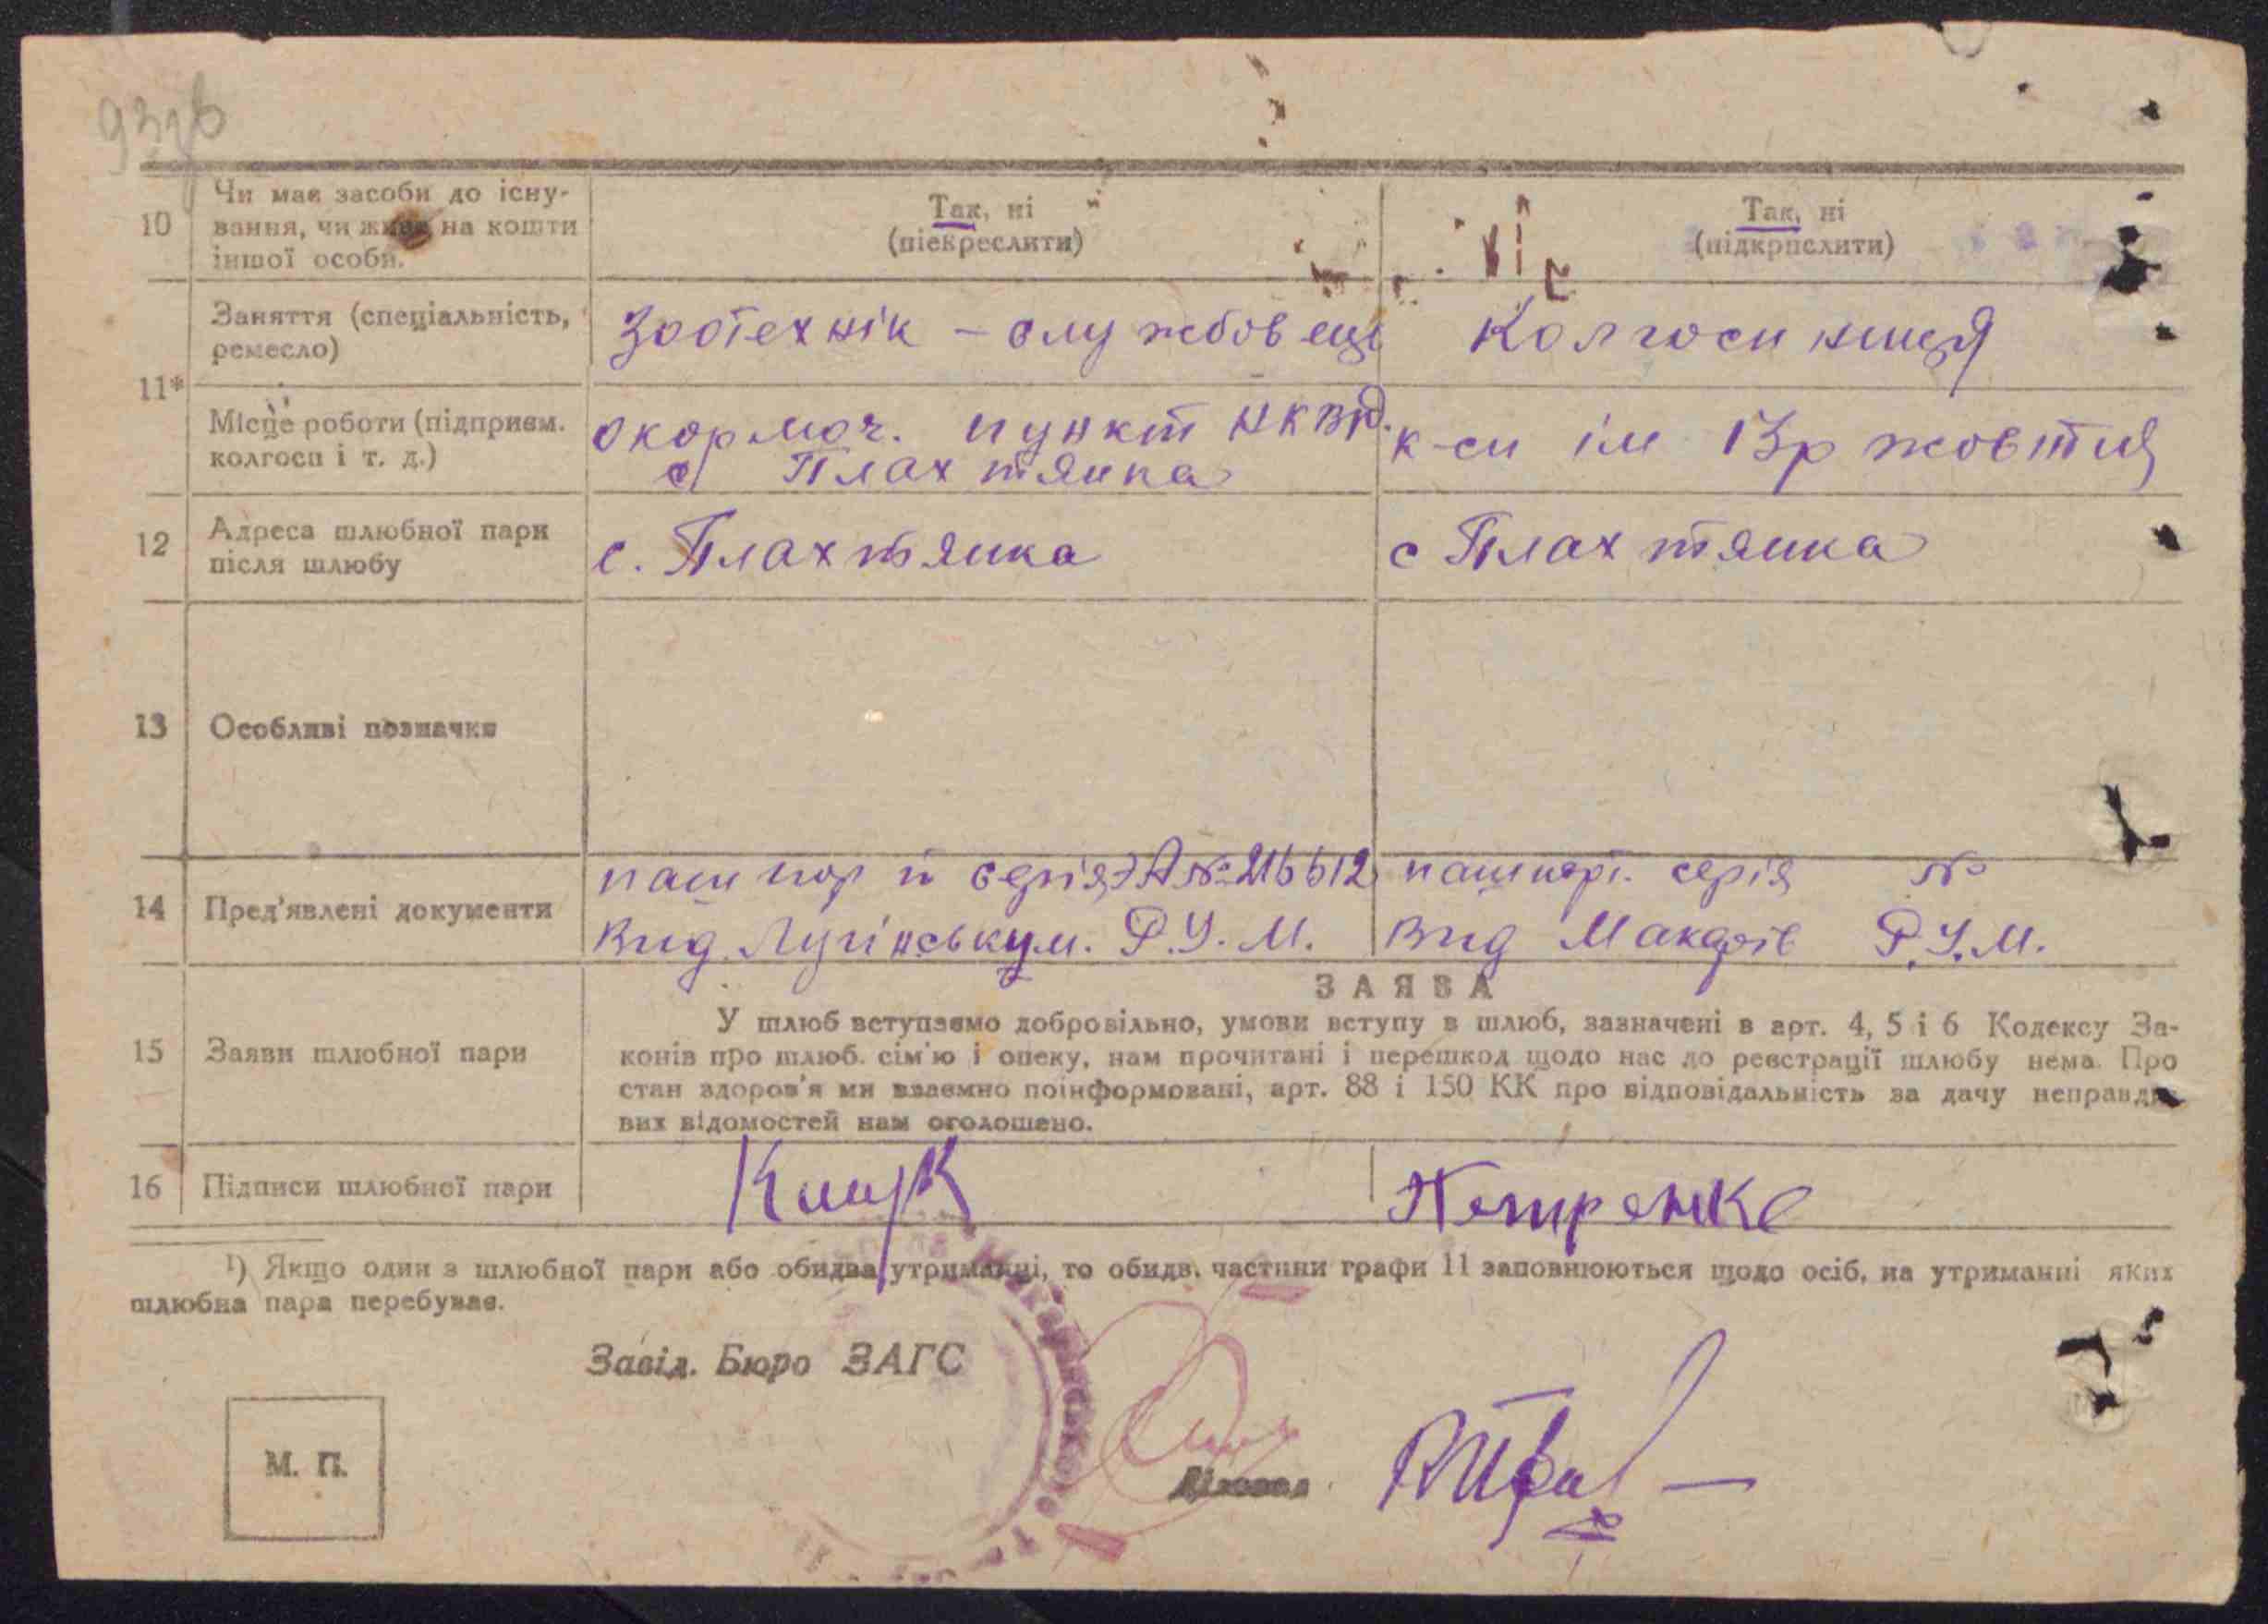 10 Чи має засоби до існу-
вання, чи живе на кошти
іншої особи.
Так, ні
(піекреслити)
Так, ні
(підкрпслити)
11*
Заняття (спеціальність,
ремесло)
Зоотехнік – службовець
Колгоспниця
Місце роботи (підприєм.
колгосп і т. д.)
окормоч. пункт НКВД.
с Плахтянка
к-сп ім 13р жовтня
12 Адреса шлюбної пари
після шлюбу
с. Плахтянка
с Плахтянка
13 Особливі позначки
14 Пред'явлені документи
пашпорт серія №
Вид. Лугінським. Р.У.М.
пашпорт. серія №
Вид Макарів Р.У.М.
15 Заяви шлюбної пари
ЗАЯВА
У шлюб вступаємо добровільно, умови вступу в шлюб, зазначені в арт. 4, 5 і 6 Кодексу За-
конів про шлюб. сім'ю і опеку, нам прочитані і перешкод щодо нас до реєстрації шлюбу нема. Про
стан здоров'я ми взаємно поінформовані, арт. 88 і 150 КК про відповідальність за дачу неправди-
вих відомостей нам оголошено.
16 Підписи шлюбної пари
Петренко
¹) Якщо один з шлюбної пари або обидва утриманні, то обидв. частини графи 11 заповнюються щодо осіб, на утриманні яких
шлюбна пара перебуває.
Завід. Бюро ЗАГС
М. П.
Діловод